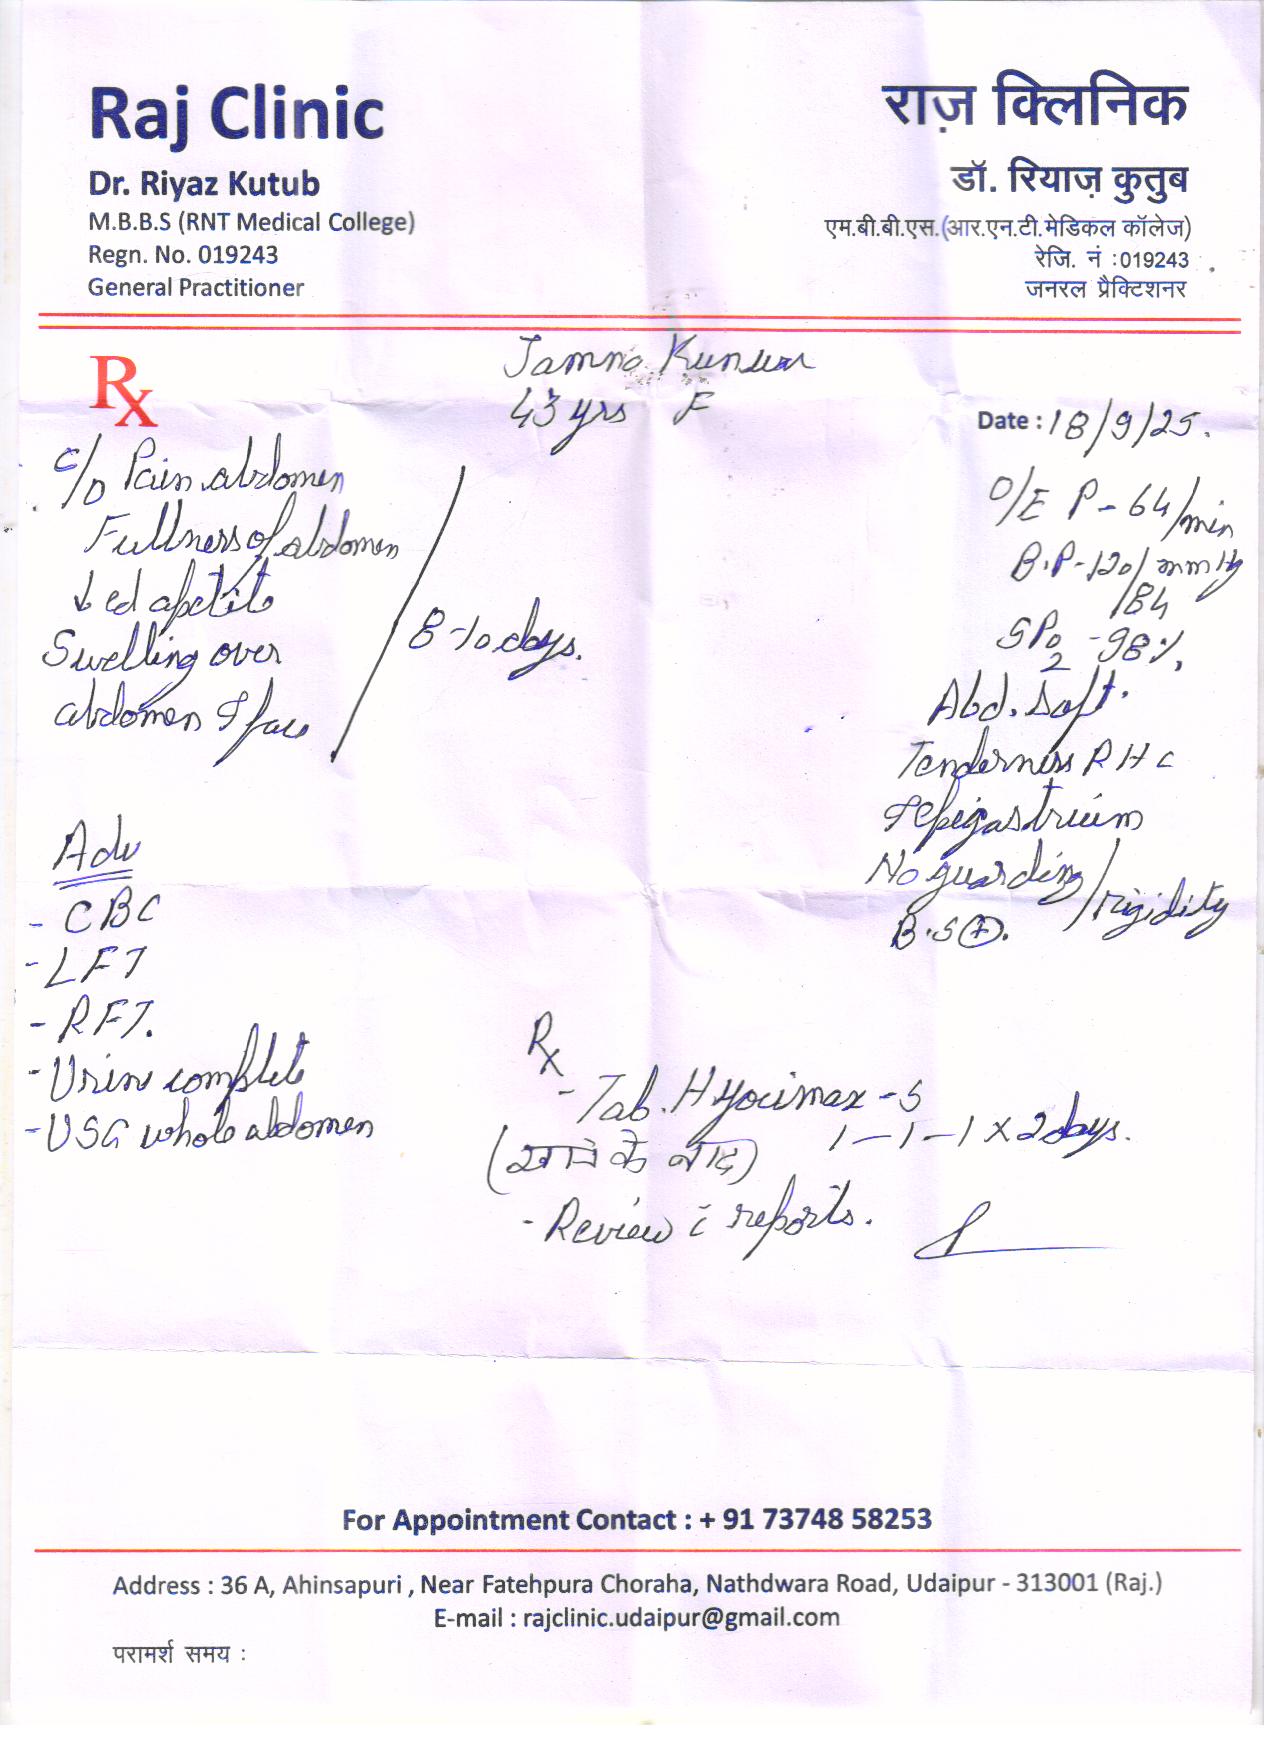 Raj Clinic
Dr. Riyaz Kutub
M.B.B.S (RNT Medical College)
Regn. No. 019243
General Practitioner
राज़ क्लिनिक
डॉ. रियाज़ कुतुब
एम.बी.बी.एस.(आर.एन.टी.मेडिकल कॉलेज)
रेजि. नं :019243
जनरल प्रैक्टिशनर
Rx
Jamna Kunwar
43 yrs F
Date : 18/9/25.
C/O Pain abdomen
Fullness of abdomen
↓ed apetite
Swelling over
abdomen & face
8-10 days.
O/E P - 64/min
B.P - 120/84 mmHg
SPO2 - 98%.
Abd. Soft.
Tenderness RHC
& epigastrium
No guarding/rigidity
B.S (+).
Adv
- CBC
- LFT
- RFT.
- Urine complete
- USG whole abdomen
Rx
- Tab. Hyocimax - S
1-1-1 x 2 days.
(खाने के बाद)
- Review c reports.
For Appointment Contact : + 91 73748 58253
Address : 36 A, Ahinsapuri , Near Fatehpura Choraha, Nathdwara Road, Udaipur - 313001 (Raj.)
E-mail : rajclinic.udaipur@gmail.com
परामर्श समय :